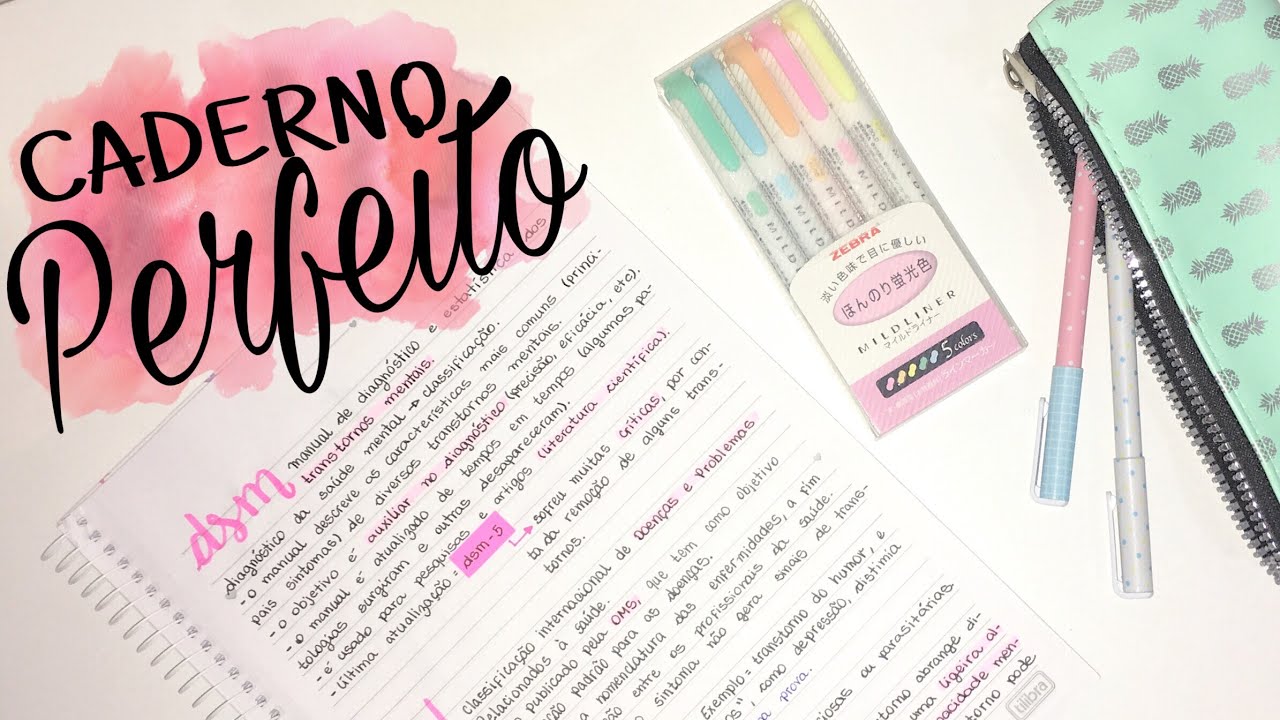 CADERNO
Perfeito
dsm
manual de diagnóstico e estatística dos
transtornos mentais.
diagnóstico da saúde mental → classificação.
- o manual descreve as características mais comuns (princi-
pais sintomas) de diversos transtornos mentais.
- o objetivo é auxiliar no diagnóstico (precisão, eficácia, etc).
- o manual é atualizado de tempos em tempos (algumas pa-
tologias surgiram e outras desapareceram).
- é usado para pesquisas e artigos (literatura científica).
- última atualização = dsm-5
sofreu muitas críticas, por con-
ta da remoção de alguns trans-
tornos.
Classificação internacional de Doenças e Problemas
Relacionados à saúde.
publicado pela OMS, que têm como objetivo
padrão para as doenças.
nomenclatura das enfermidades, a fim
entre os profissionais da saúde.
sintoma não gera mais de trans-
Exemplo = transtorno do humor, e
", como depressão, distimia
a prova.
ciosas ou parasitárias
torno abrange di-
uma ligeira al-
pacidade men-
torno pode
tilibra
ZEBRA
淡い色味で目に優しい
ほんのり蛍光色
MILDLINER
マイルドライナー
5 colors
ラインマーカー